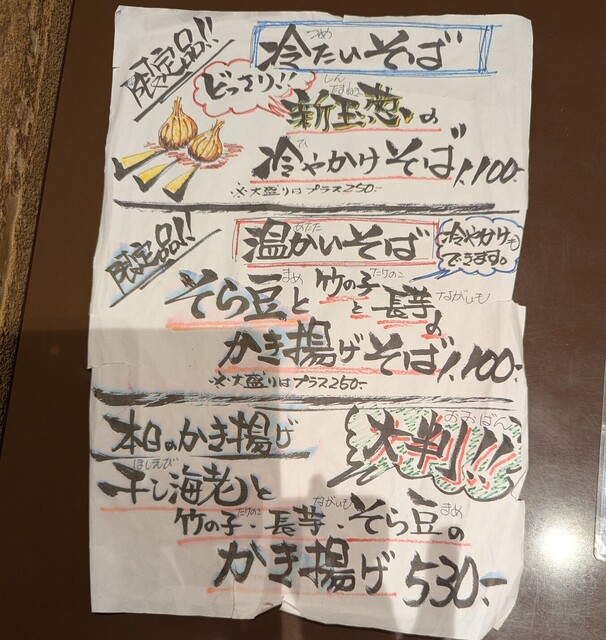 限定品!!
冷たいそば
つめ
どっさり!!
新玉葱の
しん たまねぎ
冷やかけそば 1,100-
ひ
※大盛りはプラス250-
限定品!!
温かいそば
あたた
冷やかけも
できます。
そら豆と竹の子と長芋の
まめ たけのこ ながいも
かき揚げそば 1,100-
※大盛りはプラス250-
本日のかき揚げ
大判!!
おおばん
干し海老と
ほしえび
竹の子、長芋、そら豆の
たけのこ ながいも まめ
かき揚げ 530-